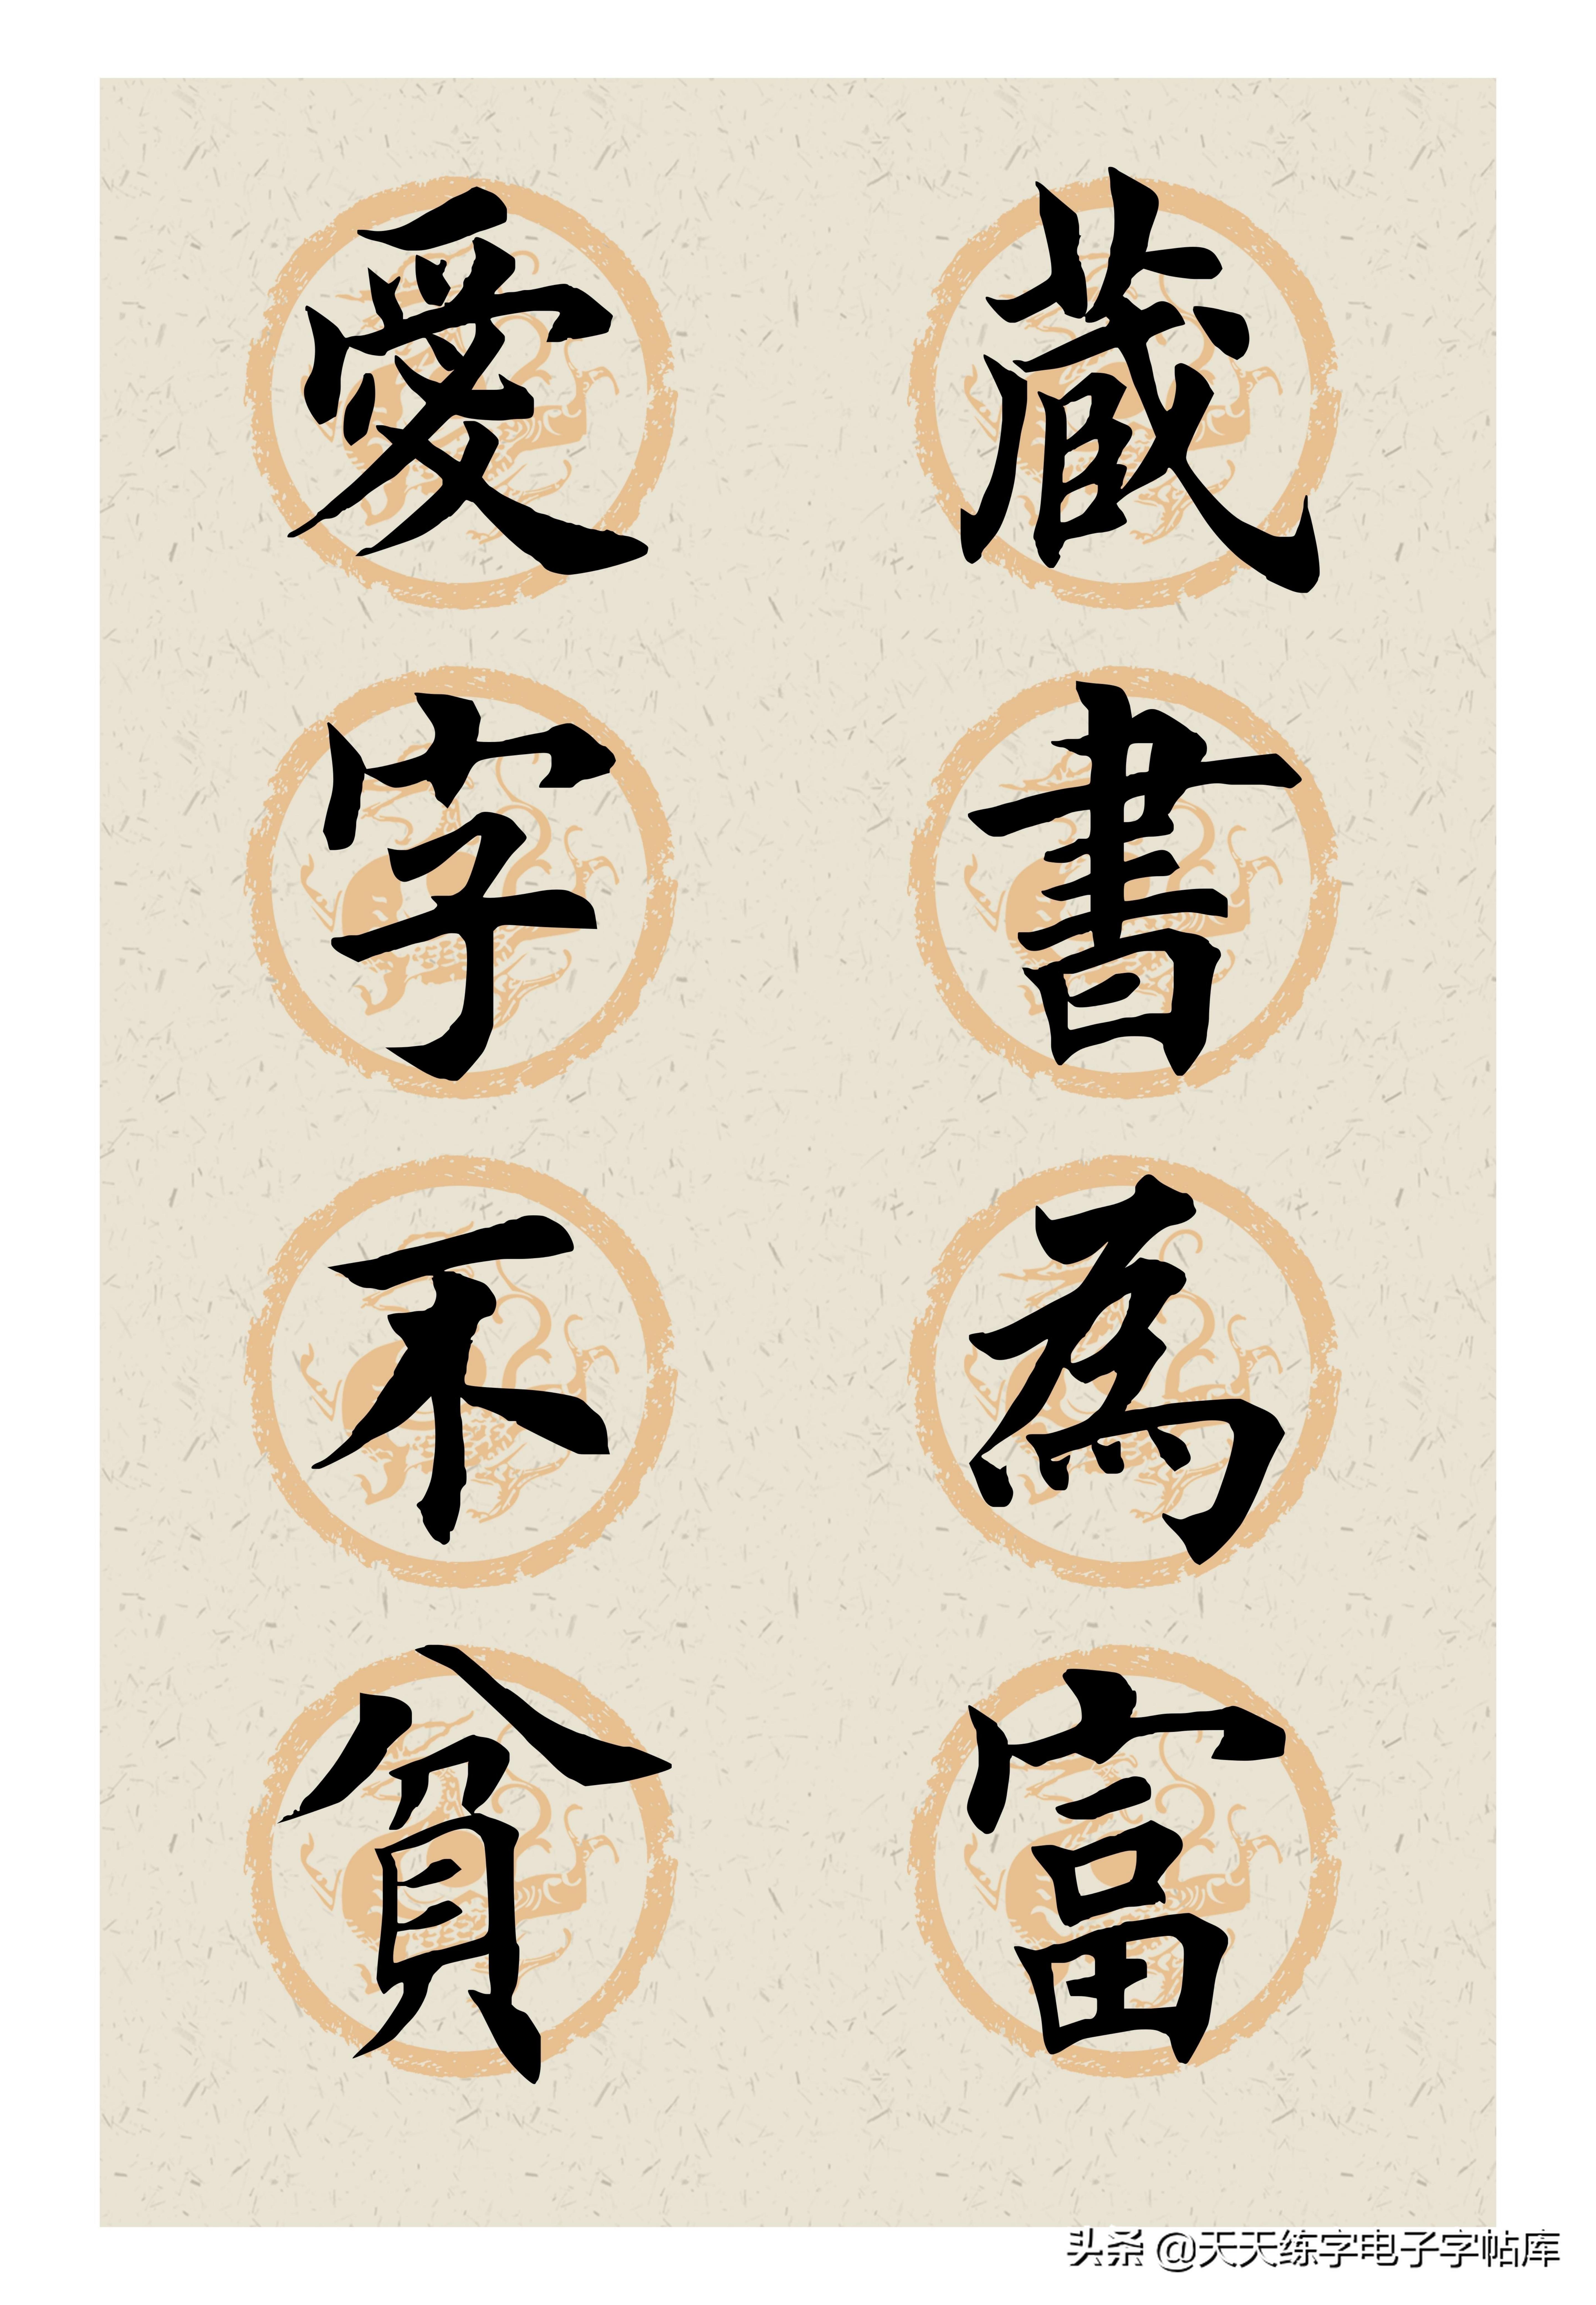 藏書為富
愛字不貧
头条 @天天练字电子字帖库